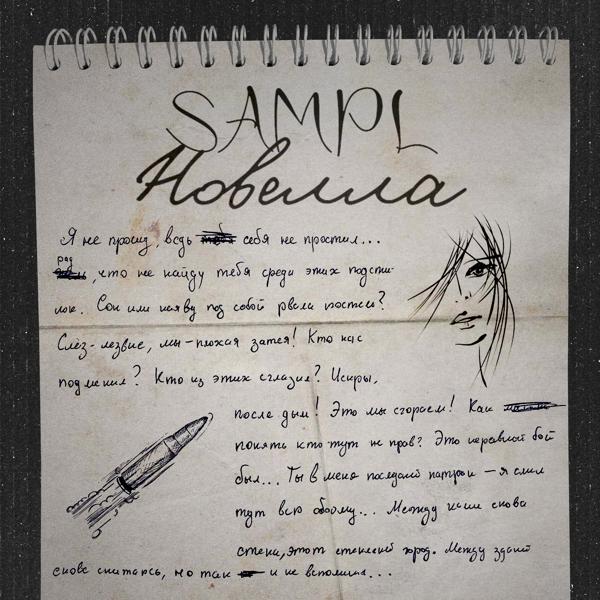 SAMPL
Новелла
Я не прошу, ведь себя не простил...
рад
, что не найду тебя среди этих подсти-
лок. Сон или наяву под собой рвала постель?
Слёз-лезвие, мы-плохая затея! Кто нас
подменил? Кто из этих сглазил? Искры,
после дым! Это мы сгораем! Как
понять кто тут не прав? Это неравный бой
был... Ты в меня последний патрон - я слил
тут всю обойму... Между нами снова
стена, этот стеклянный город. Между зданий
снова скитаюсь, но так и не вспомнил...